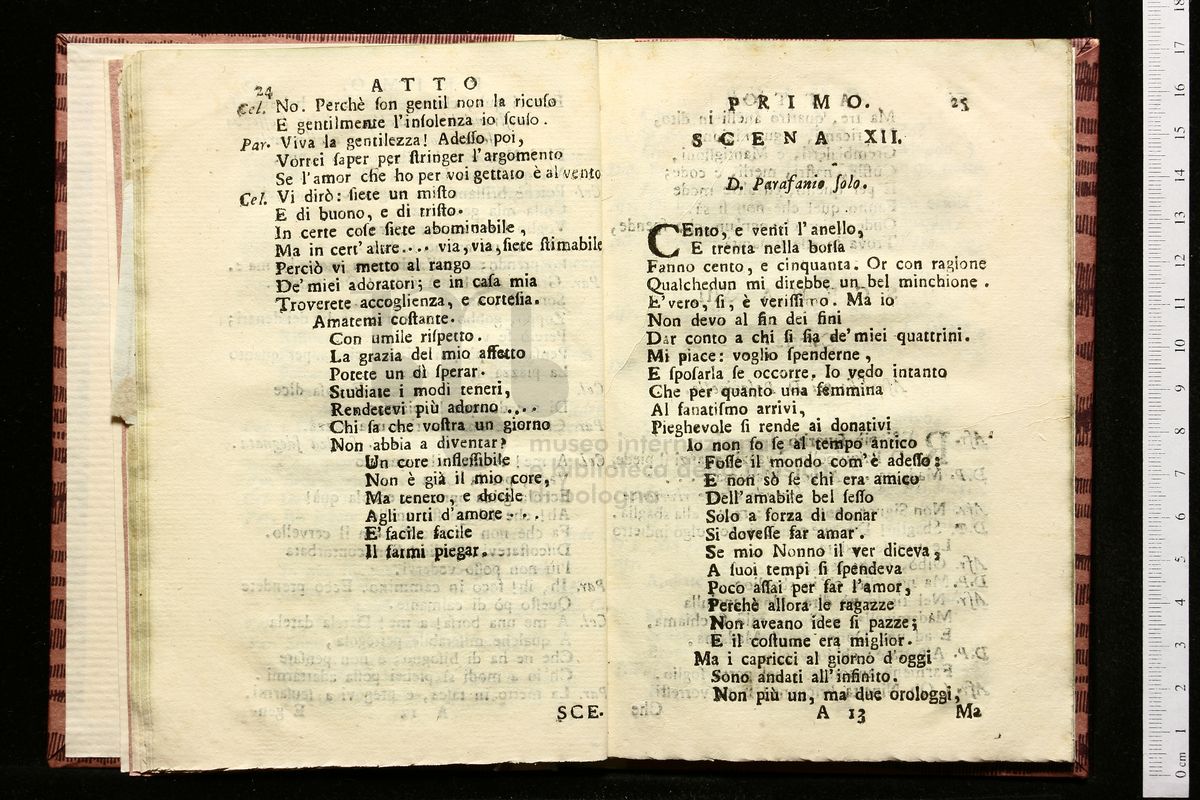 24
ATTO
Cel. No. Perchè ſon gentil non la ricuſo
E gentilmente l'inſolenza io ſcuſo.
Par. Viva la gentilezza! Adeſſo poi,
Vorrei ſaper per ſtringer l'argomento
Se l'amor che ho per voi gettato è al vento
Cel. Vi dirò: ſiete un miſto
E di buono, e di triſto.
In certe coſe ſiete abominabile,
Ma in cert'altre.... via, via, ſiete ſtimabile
Perciò vi metto al rango
De' miei adoratori; e in caſa mia
Troverete accoglienza, e corteſia.
Amatemi coſtante.
Con umile riſpetto.
La grazia del mio affetto
Potete un dì ſperar.
Studiate i modi teneri,
Rendetevi più adorno....
Chi ſa che voſtra un giorno
Non abbia a diventar?
Un core infleſſibile
Non è già il mio core,
Ma tenero, e docile
Agli urti d'amore....
E' facile facile
Il farmi piegar.
SCE-
PRIMO.
25
SCENA XII.
D. Parafanio ſolo.
CEnto, e venti l'anello,
E trenta nella borſa
Fanno cento, e cinquanta. Or con ragione
Qualchedun mi direbbe un bel minchione.
E' vero, ſi, è veriſſimo. Ma io
Non devo al fin dei fini
Dar conto a chi ſi ſia de' miei quattrini.
Mi piace: voglio ſpenderne,
E ſpoſarla ſe occorre. Io vedo intanto
Che per quanto una femmina
Al fanatiſmo arrivi,
Pieghevole ſi rende ai donativi
Io non ſo ſe al tempo antico
Foſſe il mondo com'è adeſſo;
E non sò ſe chi era amico
Dell'amabile bel ſeſſo
Solo a forza di donar
Si doveſſe far amar.
Se mio Nonno il ver diceva,
A ſuoi tempi ſi ſpendeva
Poco aſſai per far l'amor,
Perchè allora le ragazze
Non aveano idee ſi pazze;
E il coſtume era miglior.
Ma i capricci al giorno d'oggi
Sono andati all'infinito.
Non più un, ma due orologgi,
A 13
Ma